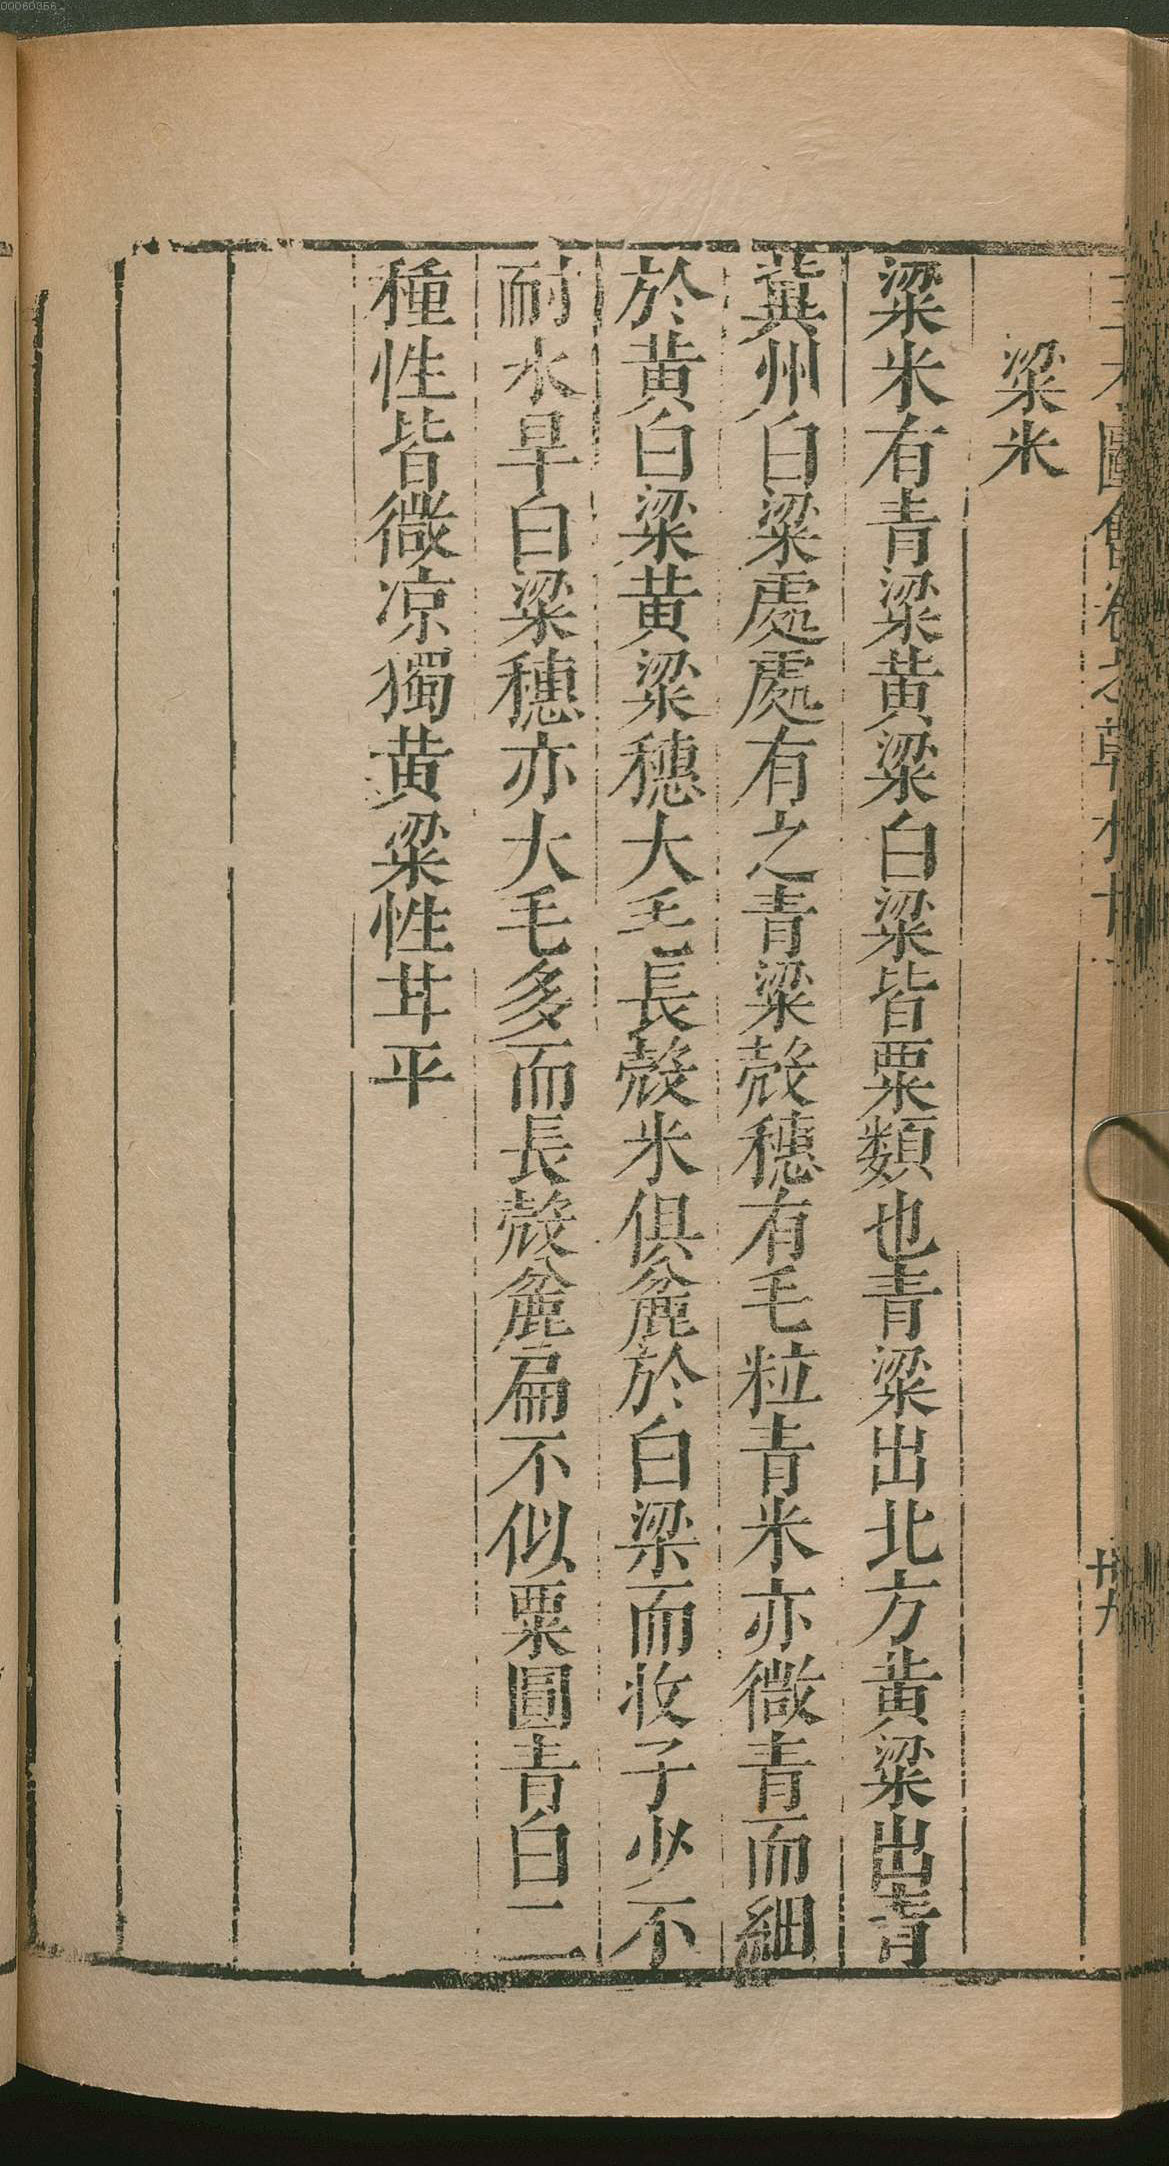 00060356
三才圖會卷之草木十
廿九
粱米
粱米有青粱黄粱白粱皆粟類也青粱出北方黄粱出青
冀州白粱處處有之青粱殻穗有毛粒青米亦微青而細
於黄白粱黄粱穗大毛長殻米俱麄於白梁而收子少不
耐水旱白粱穗亦大毛多而長殻麄扁不似粟圓青白二
種性皆微凉獨黄粱性甘平